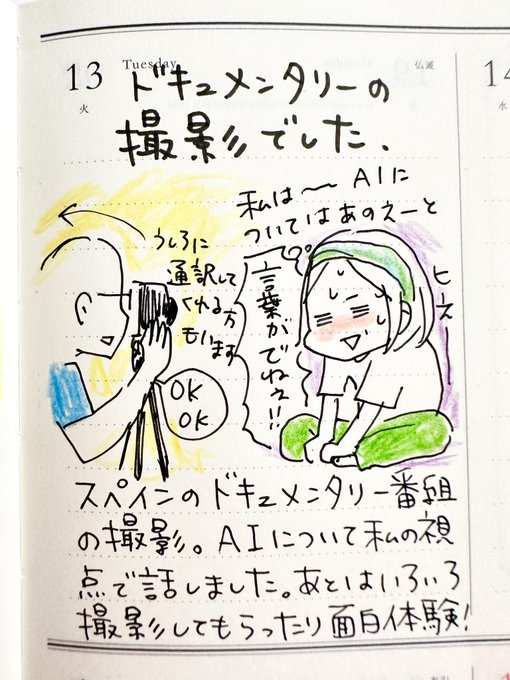 13
Tuesday
仏滅
火
14
水
ドキュメンタリーの
撮影でした、
私は〜 AIに
ついてはあのえーと
うしろに
通訳して
くれる方
もいます
言葉がでねぇ!!
ヒえー
OK
OK
スペインのドキュメンタリー番組
の撮影。AIについて私の視
点で話しました。あとはいろいろ
撮影してもらったり面白体験!